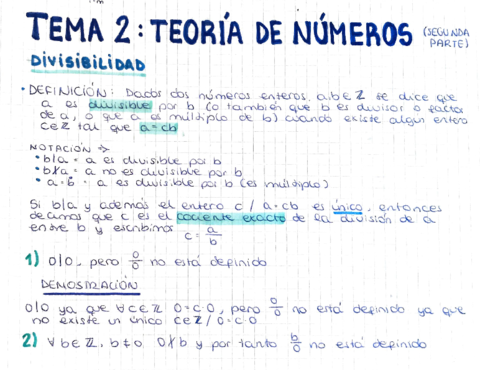 TEMA 2: TEORÍA DE NÚMEROS (SEGUNDA PARTE)
DIVISIBILIDAD
• DEFINICIÓN: Dados dos números enteros, a,b∈ℤ se dice que
a es divisible por b (o también que b es divisor o factor
de a, o que a es múltiplo de b) cuando existe algún entero
c∈ℤ tal que a=cb
NOTACIÓN →
• b|a = a es divisible por b
• b∤a = a no es divisible por b
• a=ḃ = a es divisible por b (es múltiplo)
Si b|a y además el entero c / a=cb es único, entonces
decimos que c es el cociente exacto de la división de a
entre b y escribimos c = a/b
1) 0|0, pero 0/0 no está definido
DEMOSTRACIÓN
0|0 ya que ∀c∈ℤ 0=c·0, pero 0/0 no está definido ya que
no existe un único c∈ℤ / 0=c·0
2) ∀b∈ℤ, b≠0 0∤b y por tanto b/0 no está definido